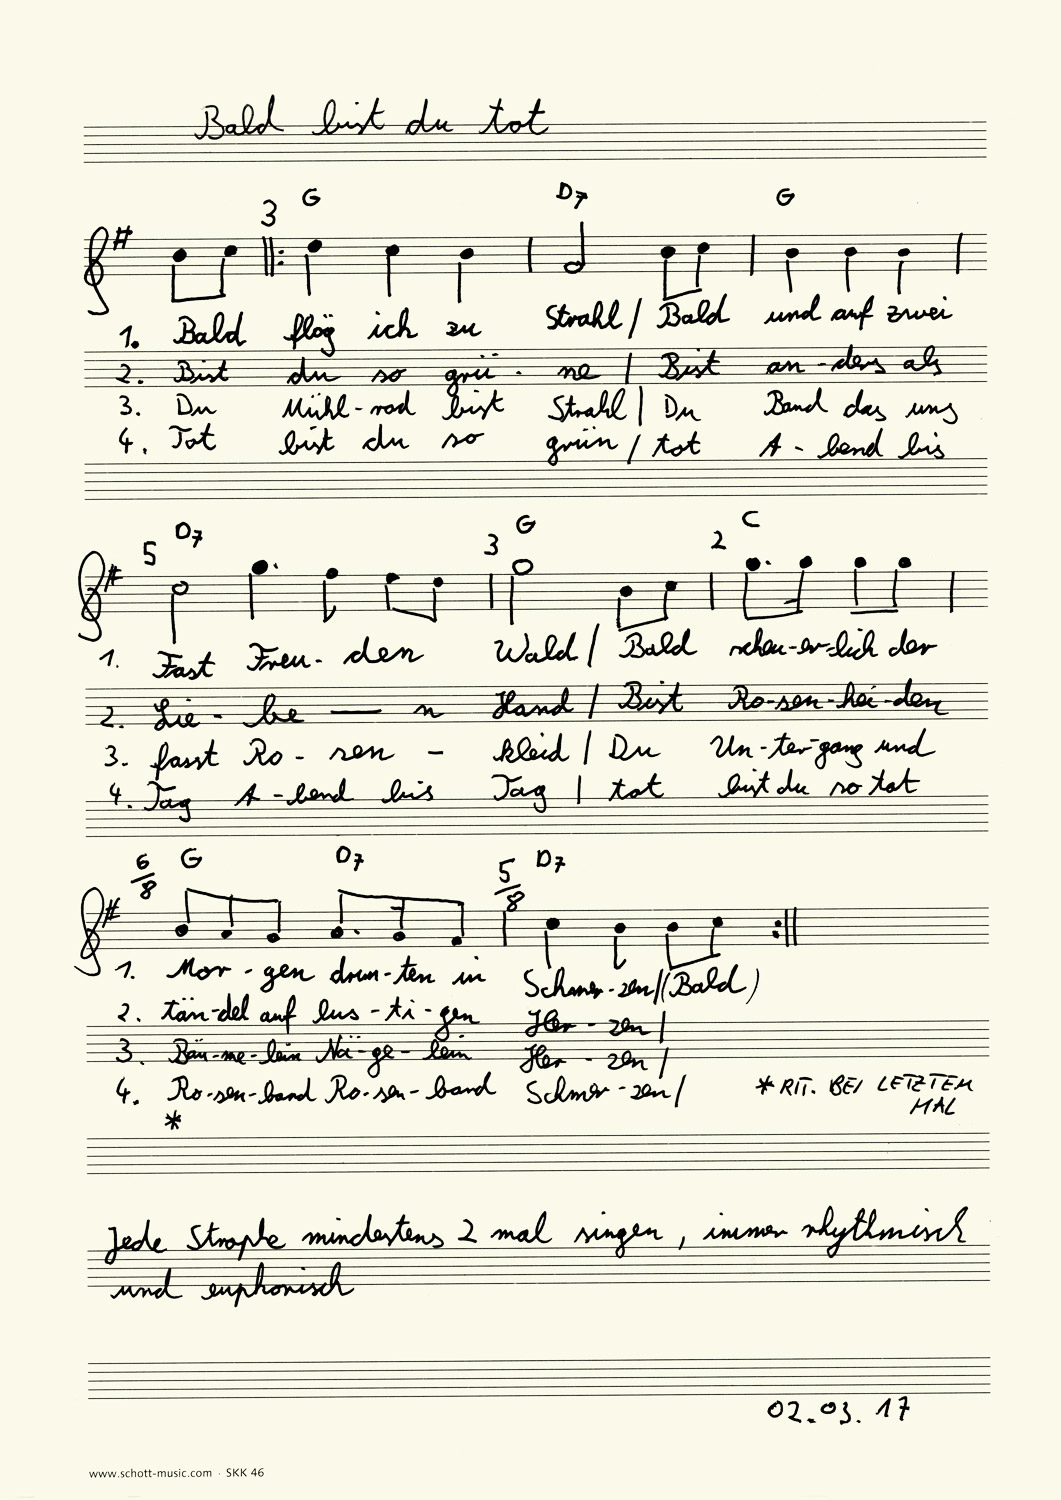 Bald bist du tot
3 G D7 G
1. Bald flög ich zu Strahl / Bald und auf zwei
2. Bist du so grü - ne / Bist an-ders als
3. Du Mühl-rad bist Strahl / Du Band das uns
4. Tot bist du so grün / tot A-bend bis
5 D7 3 G 2 C
1. Fast Freu-den Wald / Bald scheu-er-lich der
2. Lie-be — n Hand / Bist Ro-sen-hei-den
3. fasst Ro-sen - kleid / Du Un-ter-gang und
4. Tag A-bend bis Tag / tot bist du so tot
6/8 G D7 5/8 D7
1. Mor-gen drun-ten in Schmer-zen / (Bald)
2. tän-del auf lus-ti-gen Her-zen /
3. Bäu-me-lein Nä-ge-lein Her-zen /
4. Ro-sen-band Ro-sen-band Schmer-zen / * RIT. BEI LETZTEM
* MAL
Jede Strophe mindestens 2 mal singen, immer rhythmisch
und euphonisch
02.03.17
www.schott-music.com · SKK 46